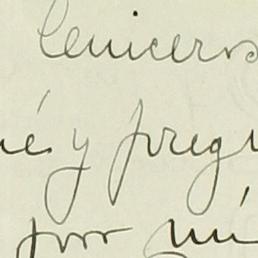 Ceniceros
né y preg
por mi